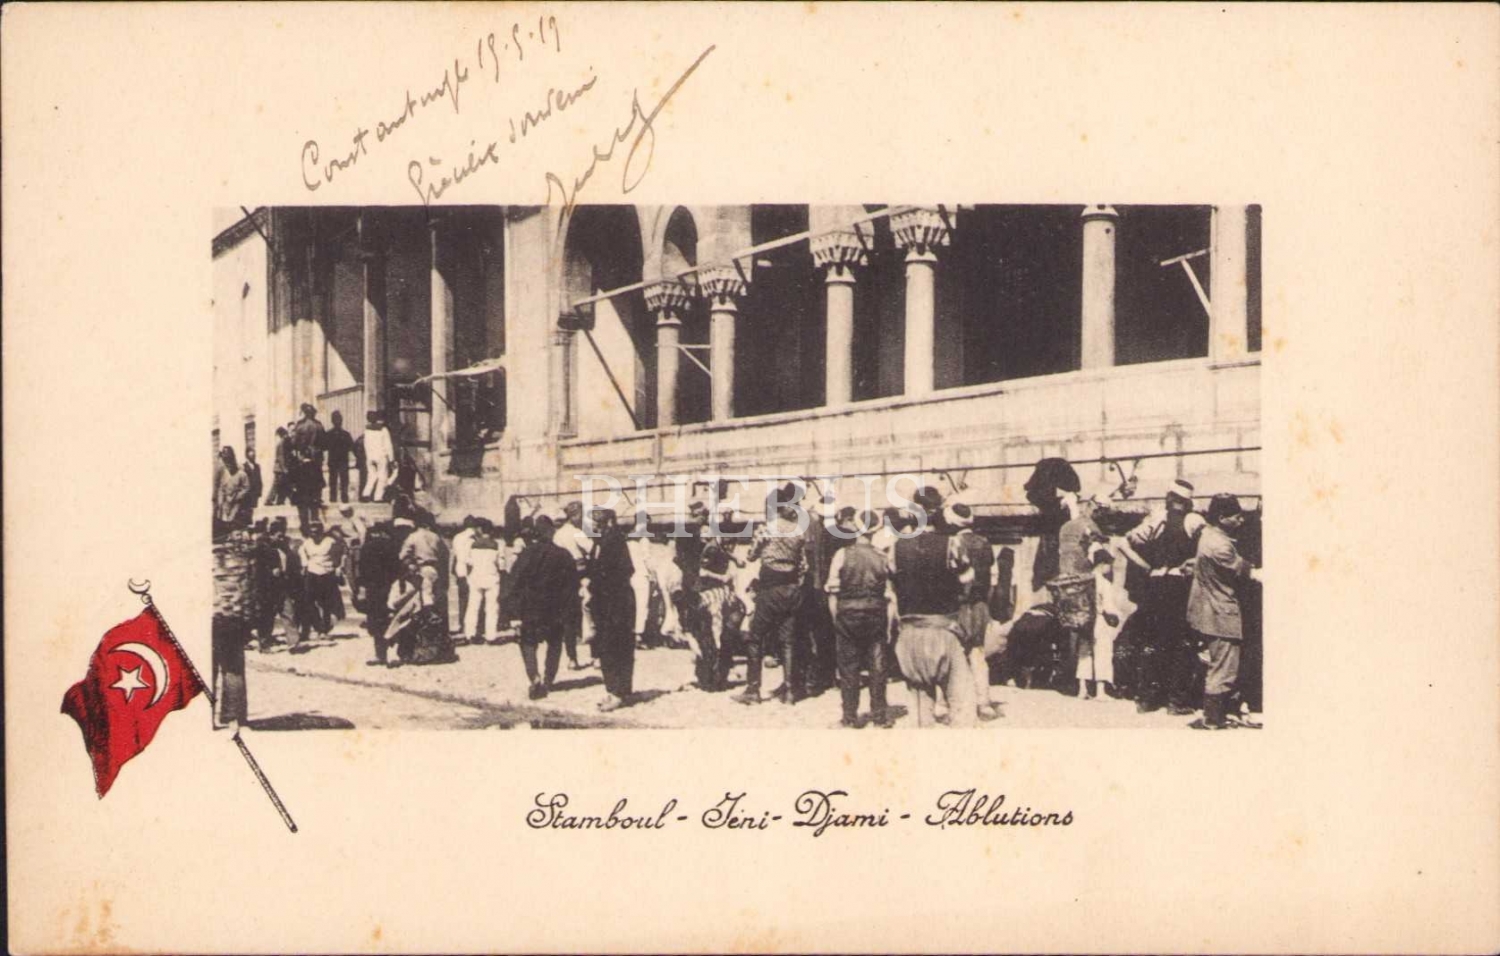 Constantinople 15.5.19
souvenir
PHEBUS
Stamboul - Jéni - Djami - Ablutions